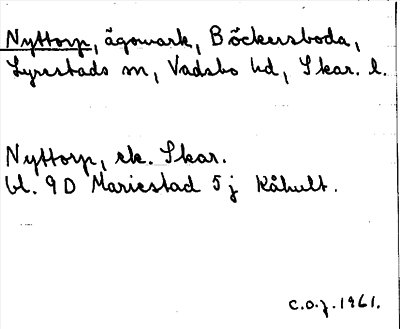 Nyttorp, ägomark, Böckersboda,
Lyrestads sn, Vadsbo hd, Skar. l.
Nyttorp, ek. Skar.
bl. 9D Mariestad 5 j Kåhult.
c.o.j. 1961.